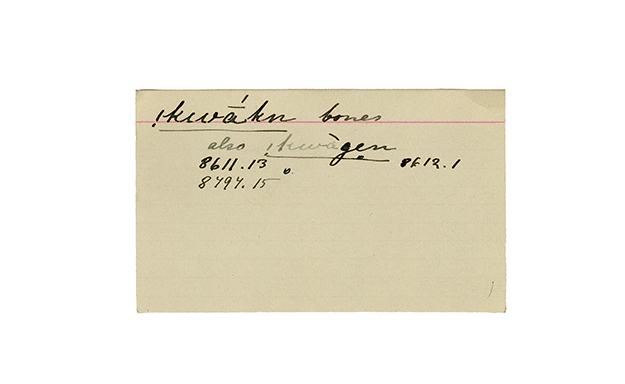 !kwā́kn bones
also !kwàgen
8611.13 8612.1
8797.15